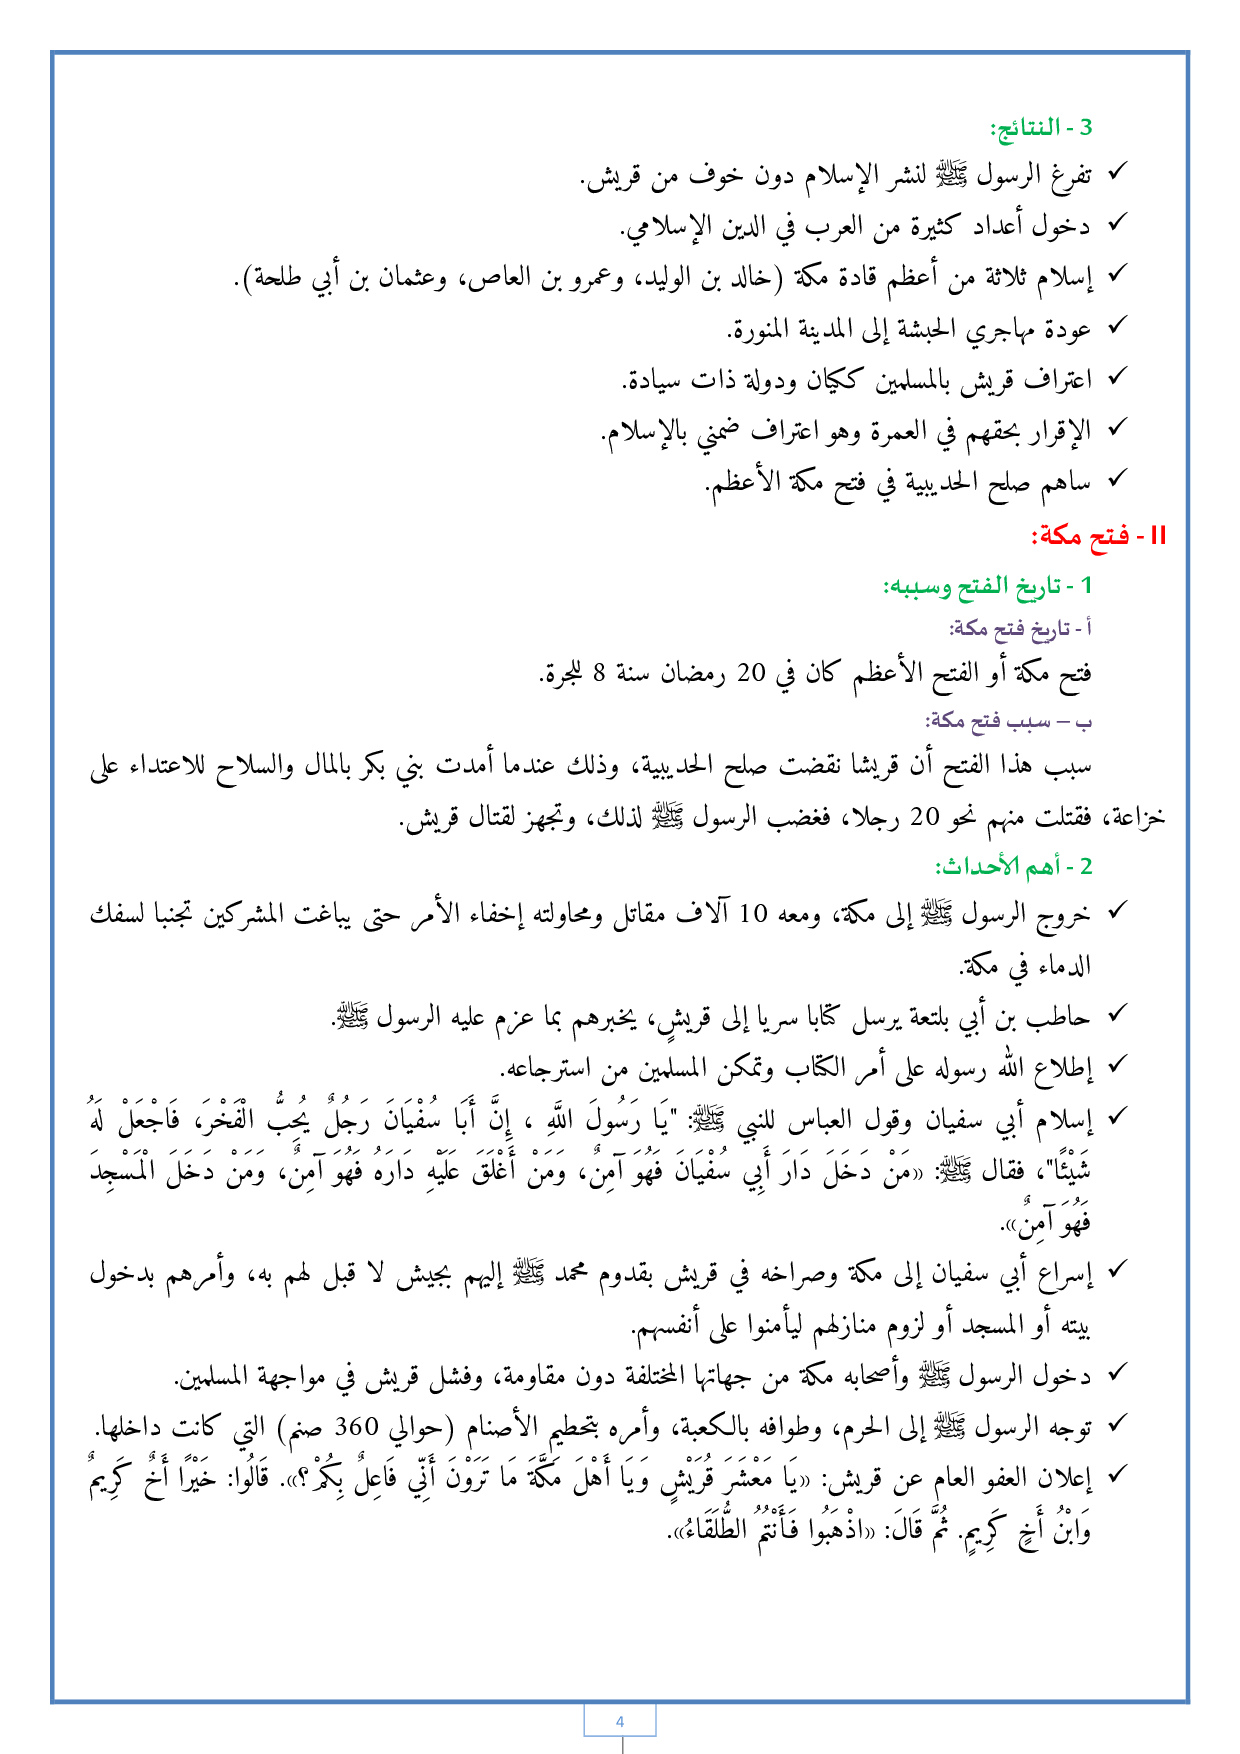 3 - النتائج:
✓ تفرغ الرسول ﷺ لنشر الإسلام دون خوف من قريش.
✓ دخول أعداد كثيرة من العرب في الدين الإسلامي.
✓ إسلام ثلاثة من أعظم قادة مكة (خالد بن الوليد، وعمرو بن العاص، وعثمان بن أبي طلحة).
✓ عودة مهاجري الحبشة إلى المدينة المنورة.
✓ اعتراف قريش بالمسلمين ككيان ودولة ذات سيادة.
✓ الإقرار بحقهم في العمرة وهو اعتراف ضمني بالإسلام.
✓ ساهم صلح الحديبية في فتح مكة الأعظم.
II - فتح مكة:
1 - تاريخ الفتح وسببه:
أ - تاريخ فتح مكة:
فتح مكة أو الفتح الأعظم كان في 20 رمضان سنة 8 للهجرة.
ب – سبب فتح مكة:
سبب هذا الفتح أن قريشا نقضت صلح الحديبية، وذلك عندما أمدت بني بكر بالمال والسلاح للاعتداء على
خزاعة، فقتلت منهم نحو 20 رجلا، فغضب الرسول ﷺ لذلك، وتجهز لقتال قريش.
2 - أهم الأحداث:
✓ خروج الرسول ﷺ إلى مكة، ومعه 10 آلاف مقاتل ومحاولته إخفاء الأمر حتى يباغت المشركين تجنبا لسفك
الدماء في مكة.
✓ حاطب بن أبي بلتعة يرسل كتابا سريا إلى قريشٍ، يخبرهم بما عزم عليه الرسول ﷺ.
✓ إطلاع الله رسوله على أمر الكتاب وتمكن المسلمين من استرجاعه.
✓ إسلام أبي سفيان وقول العباس للنبي ﷺ: "يَا رَسُولَ اللَّهِ ، إِنَّ أَبَا سُفْيَانَ رَجُلٌ يُحِبُّ الْفَخْرَ، فَاجْعَلْ لَهُ
شَيْئًا"، فقال ﷺ: «مَنْ دَخَلَ دَارَ أَبِي سُفْيَانَ فَهُوَ آمِنٌ، وَمَنْ أَغْلَقَ عَلَيْهِ دَارَهُ فَهُوَ آمِنٌ، وَمَنْ دَخَلَ الْمَسْجِدَ
فَهُوَ آمِنٌ».
✓ إسراع أبي سفيان إلى مكة وصراخه في قريش بقدوم محمد ﷺ إليهم بجيش لا قبل لهم به، وأمرهم بدخول
بيته أو المسجد أو لزوم منازلهم ليأمنوا على أنفسهم.
✓ دخول الرسول ﷺ وأصحابه مكة من جهاتها المختلفة دون مقاومة، وفشل قريش في مواجهة المسلمين.
✓ توجه الرسول ﷺ إلى الحرم، وطوافه بالكعبة، وأمره بتحطيم الأصنام (حوالي 360 صنم) التي كانت داخلها.
✓ إعلان العفو العام عن قريش: «يَا مَعْشَرَ قُرَيْشٍ وَيَا أَهْلَ مَكَّةَ مَا تَرَوْنَ أَنِّي فَاعِلٌ بِكُمْ؟». قَالُوا: خَيْرًا أَخٌ كَرِيمٌ
وَابْنُ أَخٍ كَرِيمٍ. ثُمَّ قَالَ: «اذْهَبُوا فَأَنْتُمُ الطُّلَقَاءُ».
4